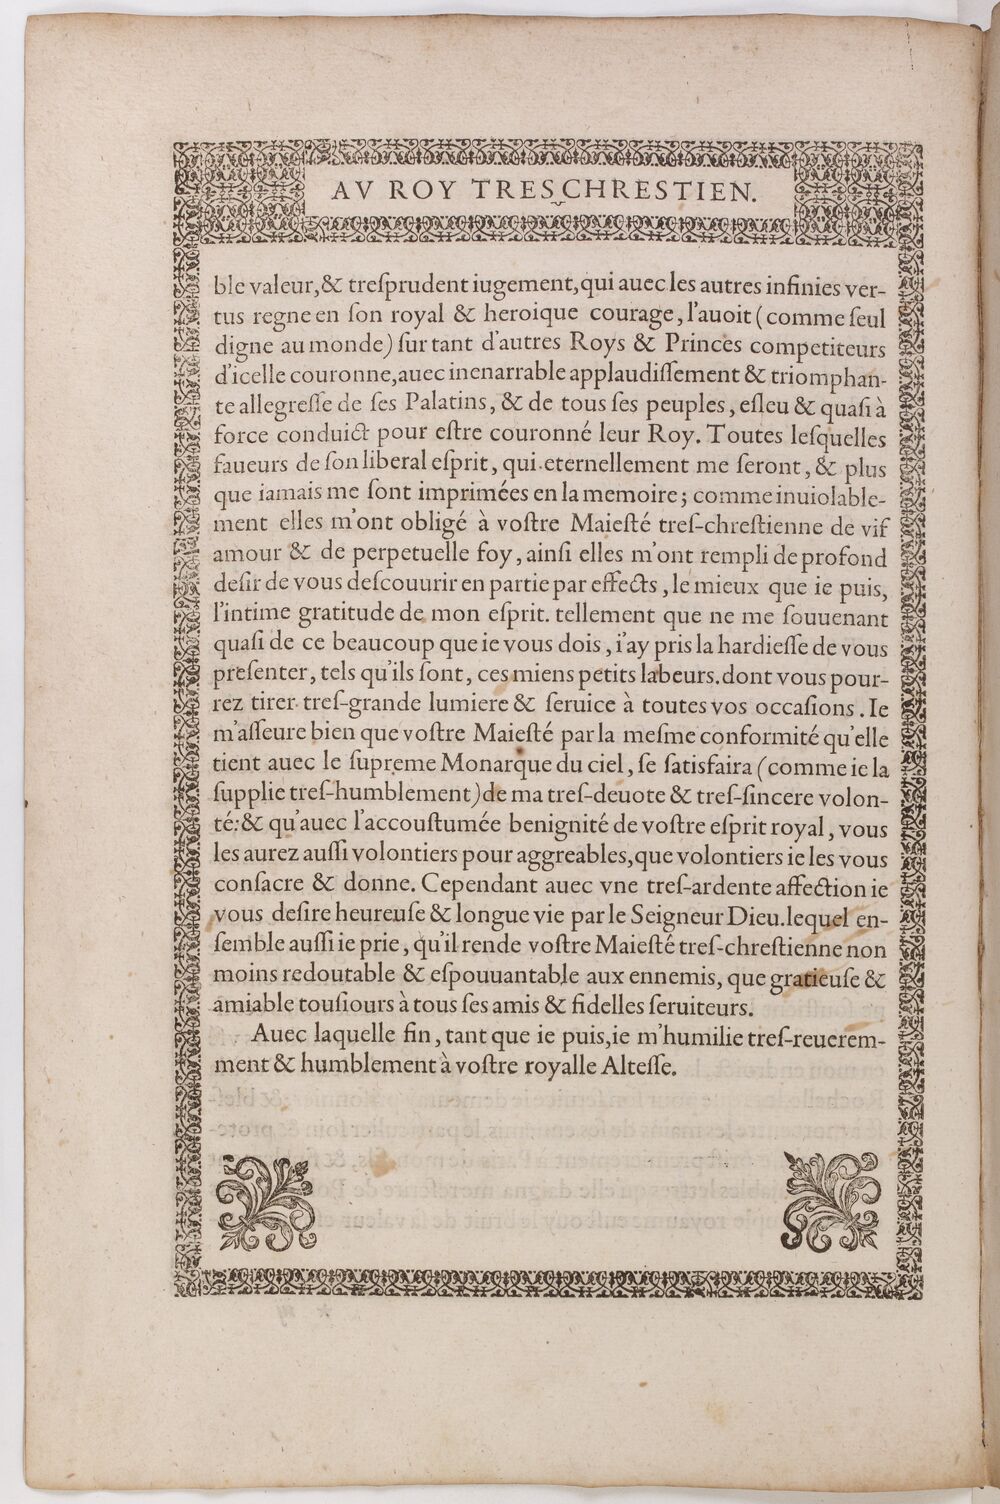 AV ROY TRESCHRESTIEN.
ble valeur,& treſprudent iugement,qui auec les autres infinies ver-
tus regne en ſon royal & heroique courage, l'auoit (comme ſeul
digne au monde) ſur tant d'autres Roys & Princes competiteurs
d'icelle couronne,auec inenarrable applaudiſſement & triomphan-
te allegreſſe de ſes Palatins, & de tous ſes peuples, eſleu & quaſi à
force conduict pour eſtre couronné leur Roy. Toutes leſquelles
faueurs de ſon liberal eſprit, qui eternellement me ſeront, & plus
que iamais me ſont imprimées en la memoire; comme inuiolable-
ment elles m'ont obligé à voſtre Maieſté treſ-chreſtienne de vif
amour & de perpetuelle foy, ainſi elles m'ont rempli de profond
deſir de vous deſcouurir en partie par effects, le mieux que ie puis,
l'intime gratitude de mon eſprit. tellement que ne me ſouuenant
quaſi de ce beaucoup que ie vous dois, i'ay pris la hardieſſe de vous
preſenter, tels qu'ils ſont, ces miens petits labeurs. dont vous pour-
rez tirer treſ-grande lumiere & ſeruice à toutes vos occaſions. Ie
m'aſſeure bien que voſtre Maieſté par la meſme conformité qu'elle
tient auec le ſupreme Monarque du ciel, ſe ſatisfaira (comme ie la
ſupplie treſ-humblement) de ma treſ-deuote & treſ-ſincere volon-
té: & qu'auec l'accouſtumée benignité de voſtre eſprit royal, vous
les aurez auſſi volontiers pour aggreables, que volontiers ie les vous
conſacre & donne. Cependant auec vne treſ-ardente affection ie
vous deſire heureuſe & longue vie par le Seigneur Dieu. lequel en-
ſemble auſſi ie prie, qu'il rende voſtre Maieſté treſ-chreſtienne non
moins redoutable & eſpouuantable aux ennemis, que gratieuſe &
amiable touſiours à tous ſes amis & fidelles ſeruiteurs.
Auec laquelle fin, tant que ie puis, ie m'humilie treſ-reuerem-
ment & humblement à voſtre royalle Alteſſe.